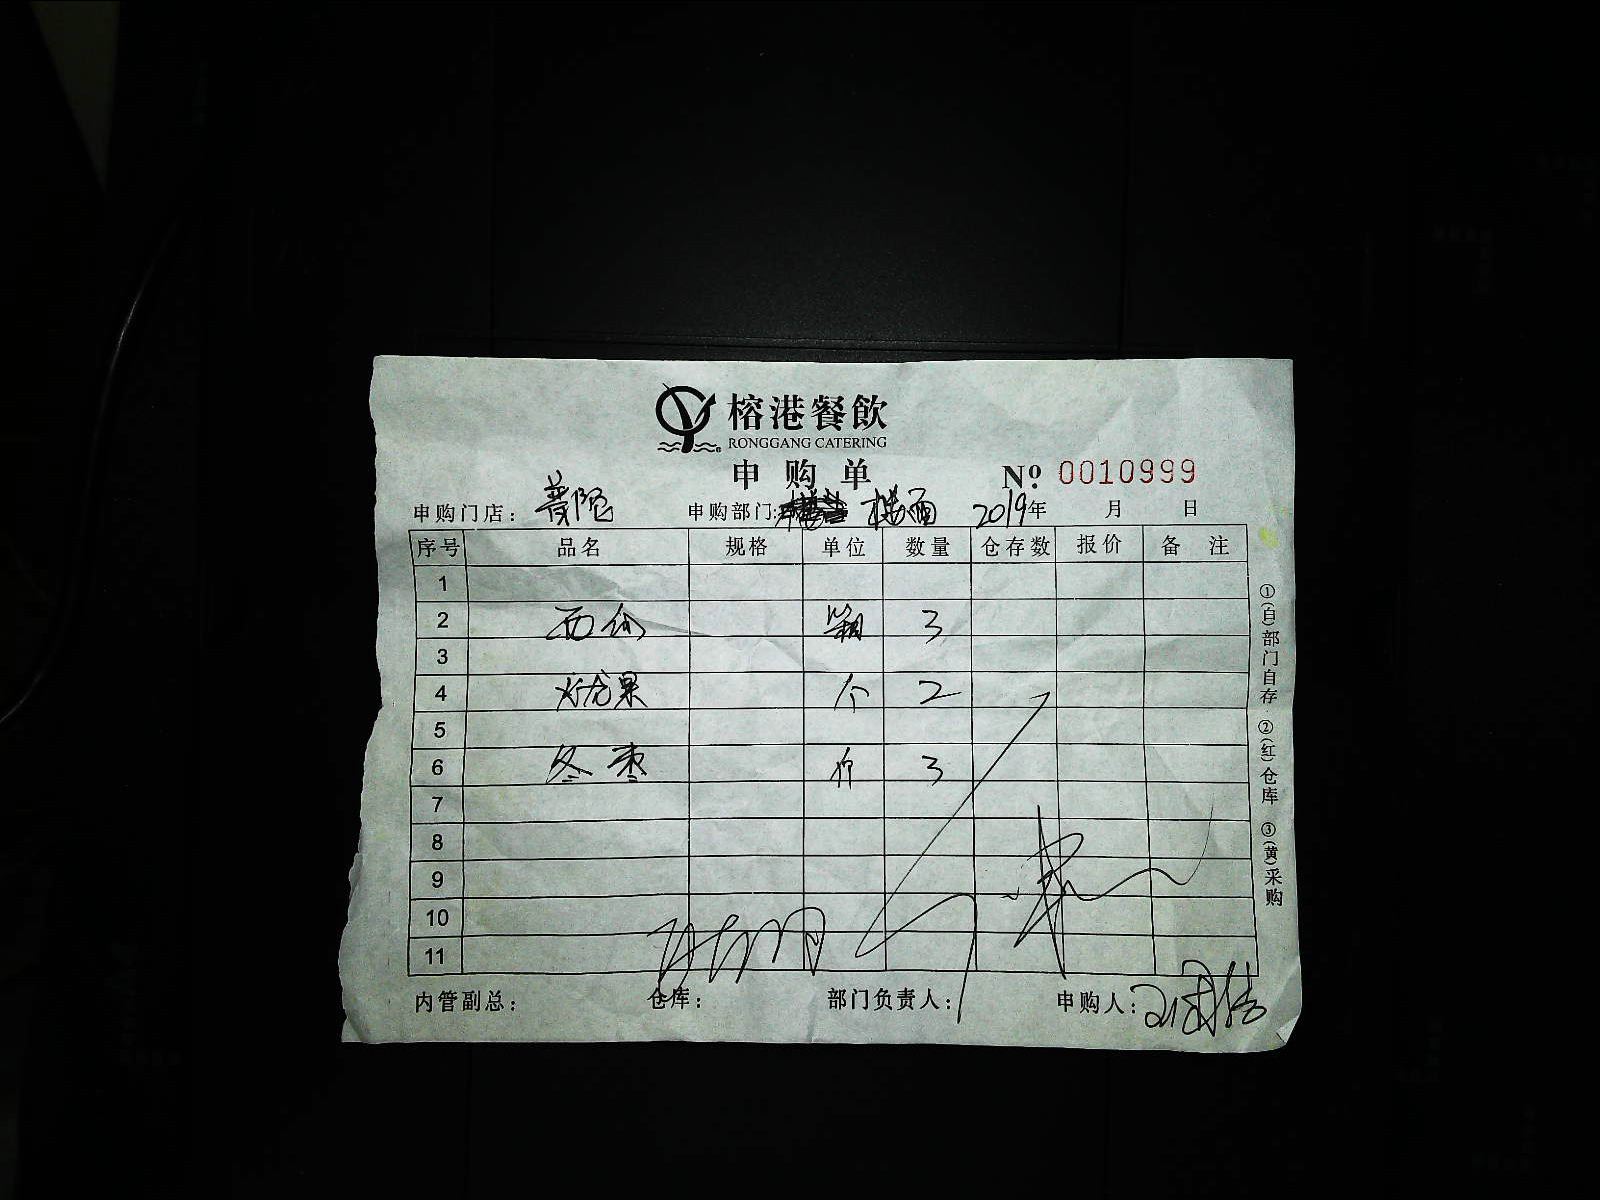 榕港餐飲
RONGGANG CATERING
申购单 Nº 0010999
申购门店: 普陀 申购部门: 楼面 2019年 月 日
序号 品名 规格 单位 数量 仓存数 报价 备注
1
2 西瓜 箱 3
3
4 火龙果 个 2
5
6 冬枣 斤 3
7
8
9
10
11
内管副总: 仓库: 部门负责人: 申购人:
①(白)部门自存 ②(红)仓库 ③(黄)采购